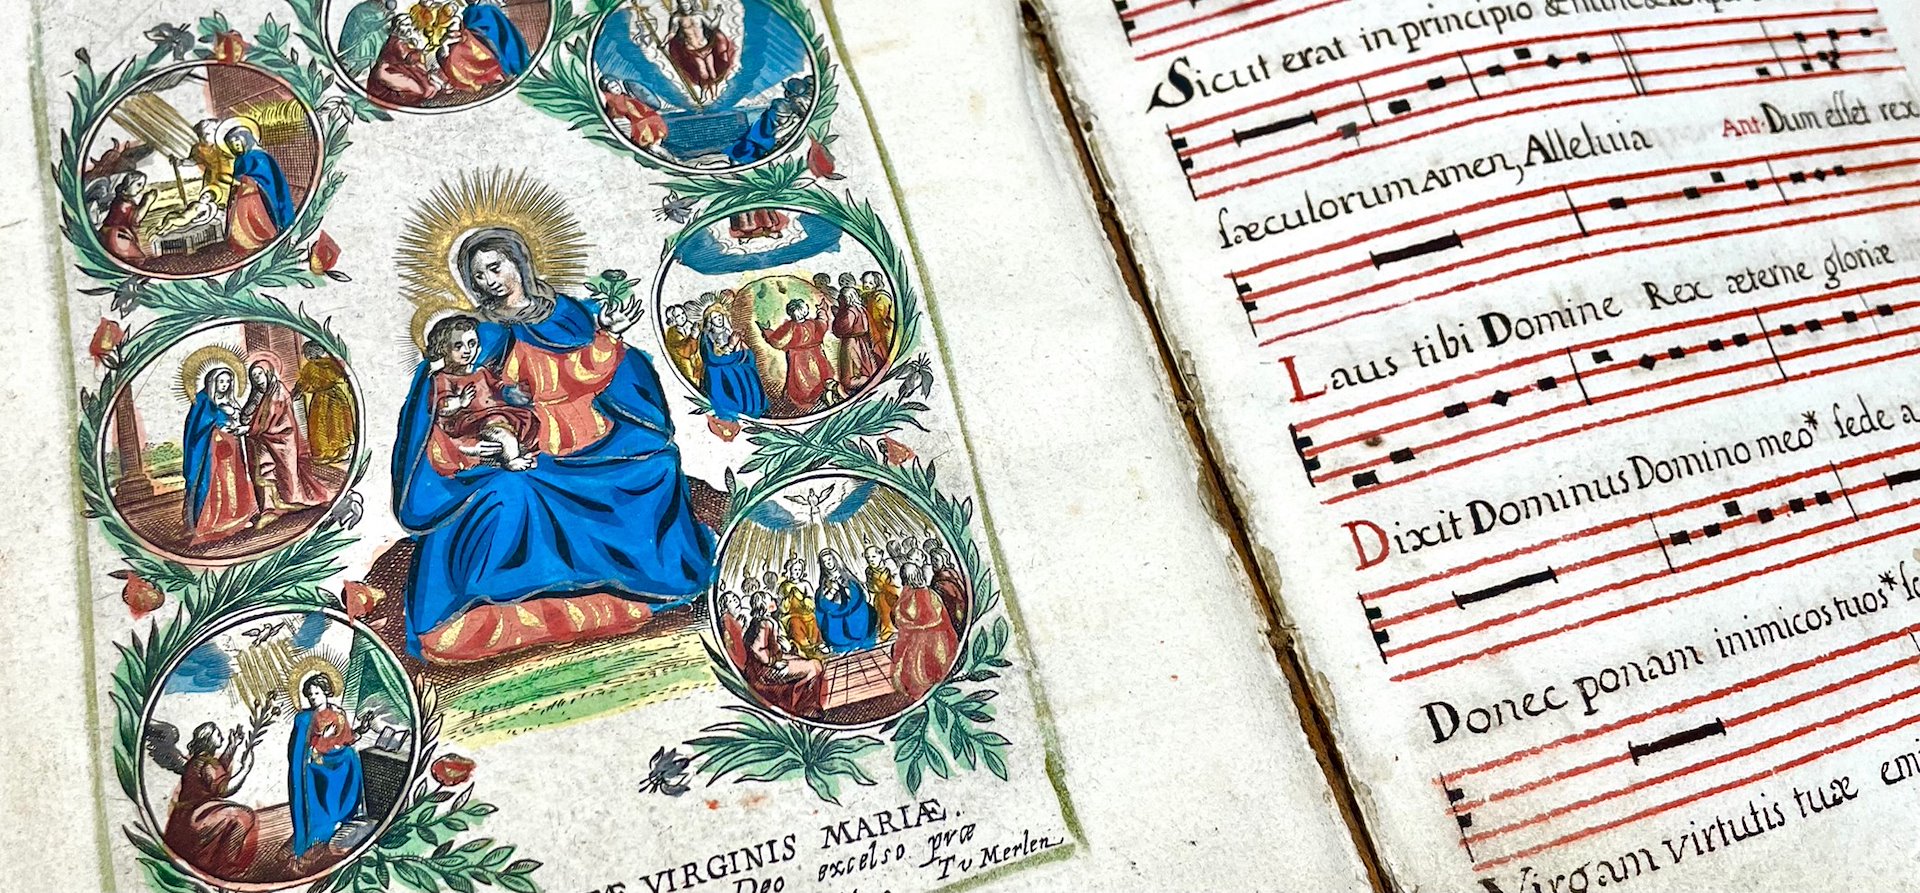 VIRGINIS MARIÆ.
Deo excelso præ
Tv Merlen
Sicut erat in principio &
ſæculorum Amen, Alleluia Ant. Dum eſſet rex
Laus tibi Domine Rex æterne gloriæ
Dixit Dominus Domino meo* ſede a
Donec ponam inimicos tuos*
Virgam virtutis tuæ